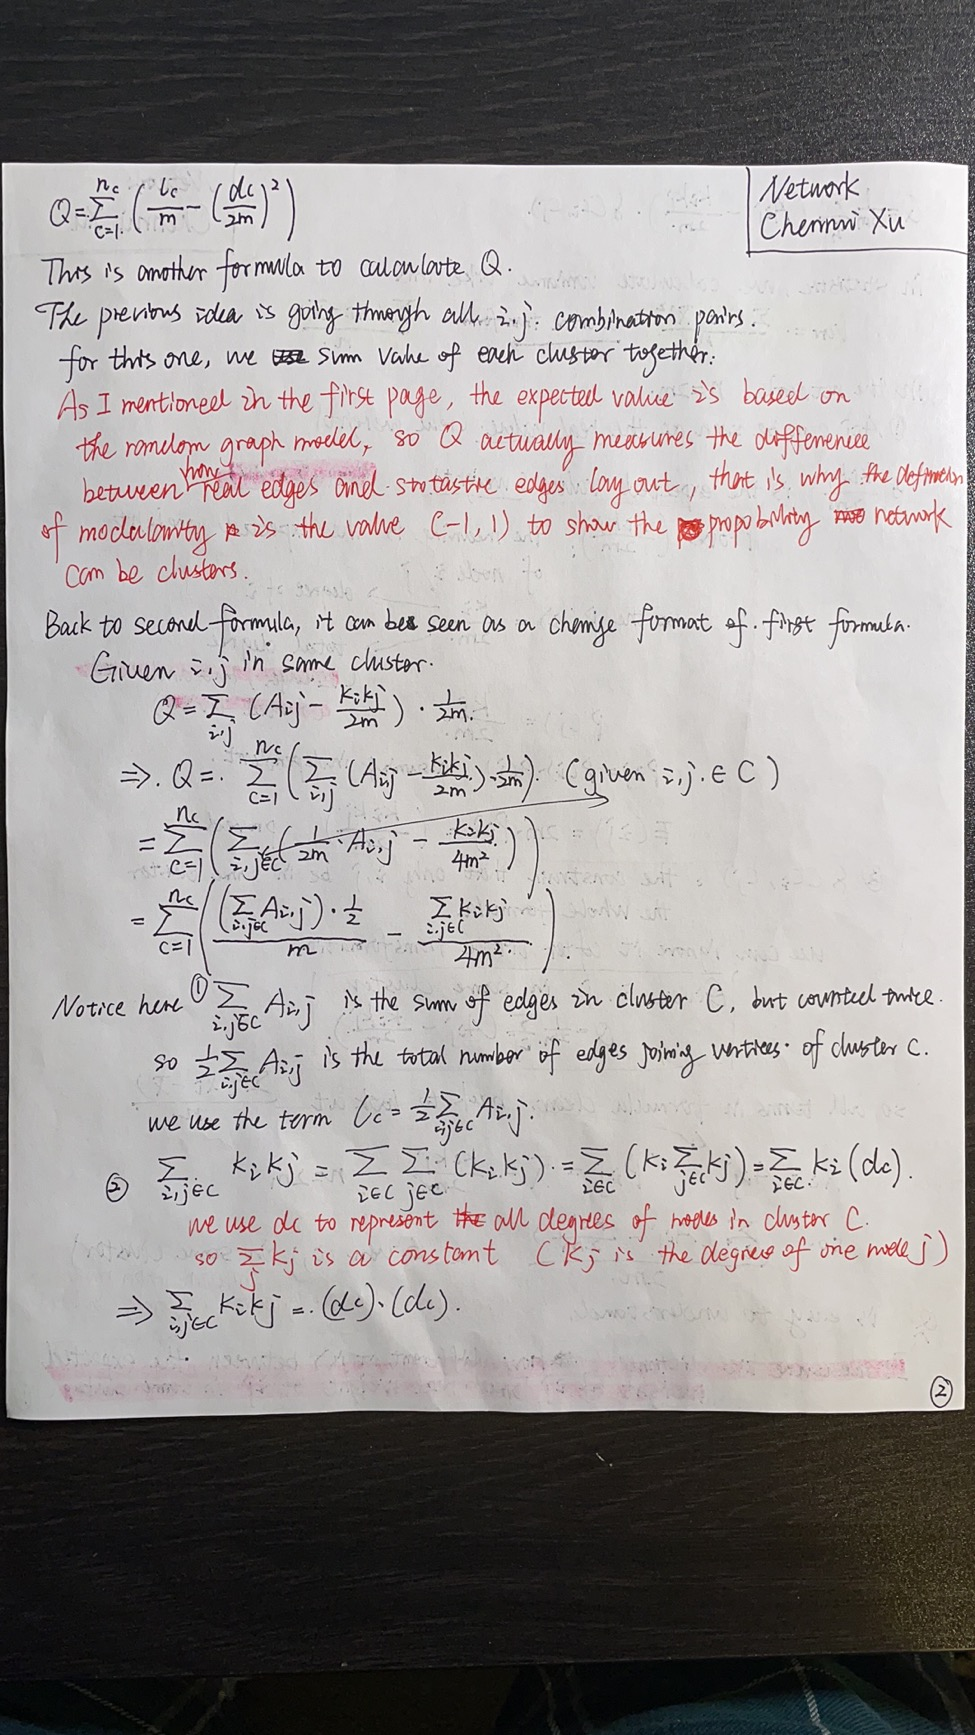 Network
Chenrui Xu
Q=∑_{c=1}^{n_c} (l_c/m − (d_c/2m)^2)
This is another formula to calculate Q.
The previous idea is going through all i,j. combination pairs.
for this one, we sum value of each cluster together.
As I mentioned in the first page, the expected value is based on
the random graph model, so Q actually measures the difference
between how real edges and stotastic edges lay out, that is why the definition
of modularity is the value (-1, 1) to show the propobility network
can be clusters.
Back to second formula, it can be seen as a change format of first formula.
Given i,j in same cluster.
Q=∑_{i,j} (A_{ij} − k_i k_j/2m) · 1/2m.
⇒. Q=. ∑_{c=1}^{n_c} (∑_{i,j} (A_{ij} − k_i k_j/2m) · 1/2m). (given i,j. ∈ C)
= ∑_{c=1}^{n_c} (∑_{i,j∈C} (1/2m · A_{i,j} − k_i k_j/4m²))
= ∑_{c=1}^{n_c} ((∑_{i,j∈C} A_{i,j}) · 1/2 / m − ∑_{i,j∈C} k_i k_j / 4m²).
Notice here ① ∑_{i,j∈C} A_{i,j} is the sum of edges in cluster C, but counted twice.
so 1/2 ∑_{i,j∈C} A_{i,j} is the total number of edges joining vertices. of cluster C.
we use the term l_c = 1/2 ∑_{i,j∈C} A_{i,j}.
② ∑_{i,j∈C} k_i k_j = ∑_{i∈C} ∑_{j∈C} (k_i k_j). = ∑_{i∈C} (k_i ∑_{j∈C} k_j) = ∑_{i∈C}. k_i (d_c).
we use dc to represent all degrees of nodes in cluster C.
so ∑_j k_j is a constant (k_j is the degree of one node j)
⇒ ∑_{i,j∈C} k_i k_j =. (d_c)·(d_c).
②